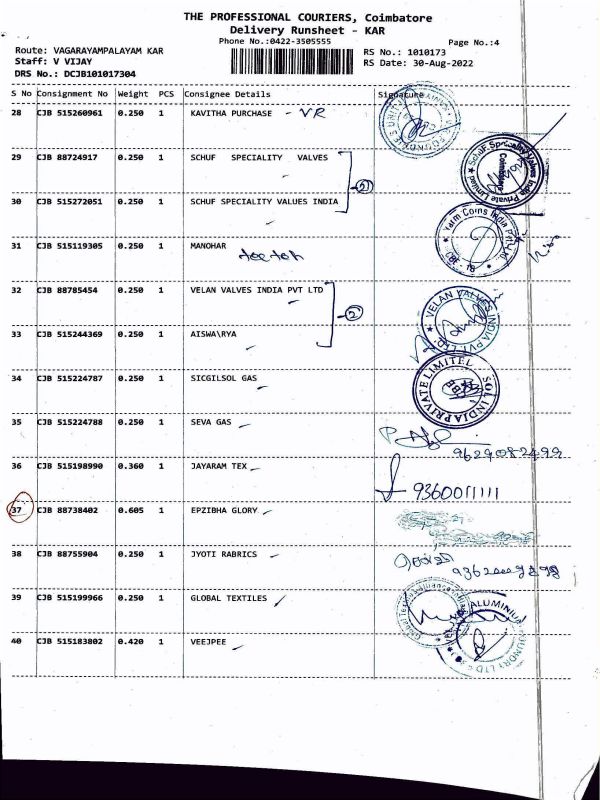 THE PROFESSIONAL COURIERS, Coimbatore
Delivery Runsheet - KAR
Phone No.:0422-3505555
Page No.:4
Route: VAGARAYAMPALAYAM KAR
RS No.: 1010173
Staff: V VIJAY
RS Date: 30-Aug-2022
DRS No.: DCJB101017304
S No Consignment No Weight PCS Consignee Details Signature
28 CJB 515260961 0.250 1 KAVITHA PURCHASE - VR
29 CJB 88724917 0.250 1 SCHUF SPECIALITY VALVES
Schuf Speciality Valves India Private Limited
Coimbatore
30 CJB 515272051 0.250 1 SCHUF SPECIALITY VALVES INDIA
31 CJB 515119305 0.250 1 MANOHAR
Yarm Coins India
32 CJB 88785454 0.250 1 VELAN VALVES INDIA PVT LTD
VELAN VALVES INDIA PVT. LTD.
33 CJB 515244369 0.250 1 AISWA\RYA
34 CJB 515224787 0.250 1 SICGILSOL GAS
SOL INDIA PRIVATE LIMITED
35 CJB 515224788 0.250 1 SEVA GAS
36 CJB 515198990 0.360 1 JAYARAM TEX
9360011111
37 CJB 88738402 0.605 1 EPZIBHA GLORY
38 CJB 88755904 0.250 1 JYOTI RABRICS
39 CJB 515199966 0.250 1 GLOBAL TEXTILES
40 CJB 515183802 0.420 1 VEEJPEE
ALUMINIUM FOUNDRY LTD